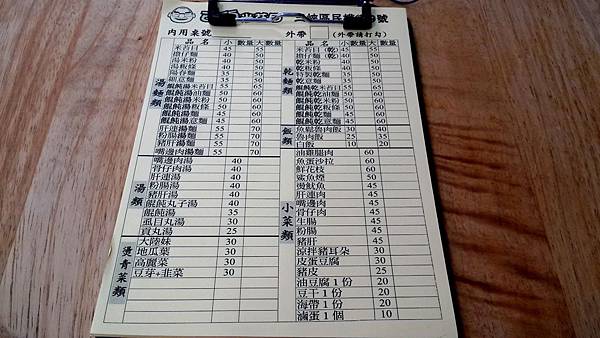 三峽區民權街9號
內用桌號 外帶 (外帶請打勾)
品名 小 數量 大 數量
湯麵類
米苔目 45 55
擔仔麵 40 50
湯米粉 40 50
湯板條 40 50
陽春麵 40 50
細意麵 40 50
餛飩湯米苔目 55 65
餛飩湯油麵 50 60
餛飩湯米粉 50 60
餛飩湯板條 50 60
餛飩湯麵 50 60
餛飩湯意麵 50 60
肝連湯麵 55 70
粉腸湯麵 55 70
豬肝湯麵 55 70
嘴邊肉湯麵 55 70
湯類
嘴邊肉湯 40
骨仔肉湯 40
肝連湯 40
粉腸湯 40
豬肝湯 40
餛飩丸子湯 40
餛飩湯 35
虱目丸湯 30
貢丸湯 25
燙青菜類
大陸妹 30
地瓜葉 30
高麗菜 30
豆芽+韭菜 30
品名 小 數量 大 數量
乾麵類
米苔目(乾) 45 55
擔仔麵(乾) 40 50
乾米粉 40 50
乾板條 40 50
特製乾麵 40 50
乾意麵 40 50
餛飩乾米苔目 55 65
餛飩乾油麵 50 60
餛飩乾米粉 50 60
餛飩乾板條 50 60
餛飩乾麵 50 60
餛飩乾意麵 50 60
飯類
魚鬆魯肉飯 30 40
魯肉飯 25 35
白飯 10 20
小菜類
油雞腿肉 60
魚蛋沙拉 60
鮮花枝 60
鯊魚煙 50
燙魷魚 45
肝連肉 45
嘴邊肉 45
骨仔肉 45
生腸 45
粉腸 45
豬肝 45
涼拌豬耳朵 30
皮蛋豆腐 30
豬皮 25
油豆腐1份 20
豆干1份 20
海帶1份 20
滷蛋1個 10